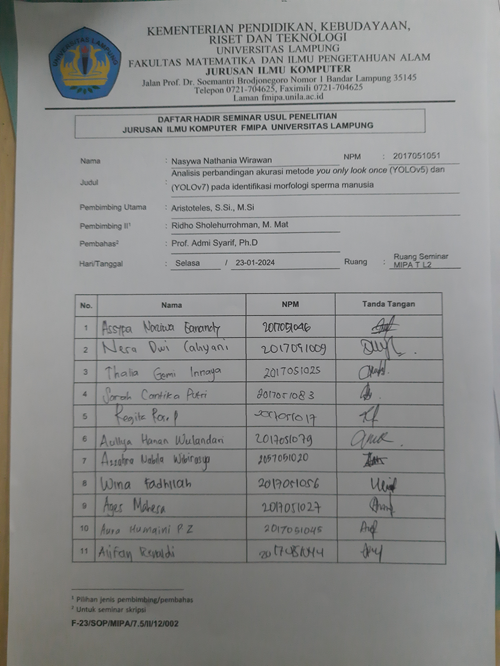 KEMENTERIAN PENDIDIKAN, KEBUDAYAAN,
RISET DAN TEKNOLOGI
UNIVERSITAS LAMPUNG
FAKULTAS MATEMATIKA DAN ILMU PENGETAHUAN ALAM
JURUSAN ILMU KOMPUTER
Jalan Prof. Dr. Soemantri Brodjonegoro Nomor 1 Bandar Lampung 35145
Telepon 0721-704625, Faximili 0721-704625
Laman fmipa.unila.ac.id
UNIVERSITAS LAMPUNG
DAFTAR HADIR SEMINAR USUL PENELITIAN
JURUSAN ILMU KOMPUTER FMIPA UNIVERSITAS LAMPUNG
Nama : Nasywa Nathania Wirawan NPM : 2017051051
Judul : Analisis perbandingan akurasi metode you only look once (YOLOv5) dan
(YOLOv7) pada identifikasi morfologi sperma manusia
Pembimbing Utama : Aristoteles, S.Si., M.Si
Pembimbing II¹ : Ridho Sholehurrohman, M. Mat
Pembahas² : Prof. Admi Syarif, Ph.D
Hari/Tanggal : Selasa / 23-01-2024 Ruang : Ruang Seminar
MIPA T L2
No. Nama NPM Tanda Tangan
1 Assyfa 2017051046
2 Nera Dwi Cahyani 2017051009
3 Thalia Gemi Innaya 2017051025
4 Sarah Cantika Putri 2017051083
5 2017051017
6 Auliya Hanan Wulandari 2017051079
7 Nabila 2057051020
8 Wina Fadhilah 2017051056
9 Ages Mahesa 2017051027
10 Aura Humaini P Z 2017051045
11 Alifan Renaldi
¹ Pilihan jenis pembimbing/pembahas
² Untuk seminar skripsi
F-23/SOP/MIPA/7.5/II/12/002